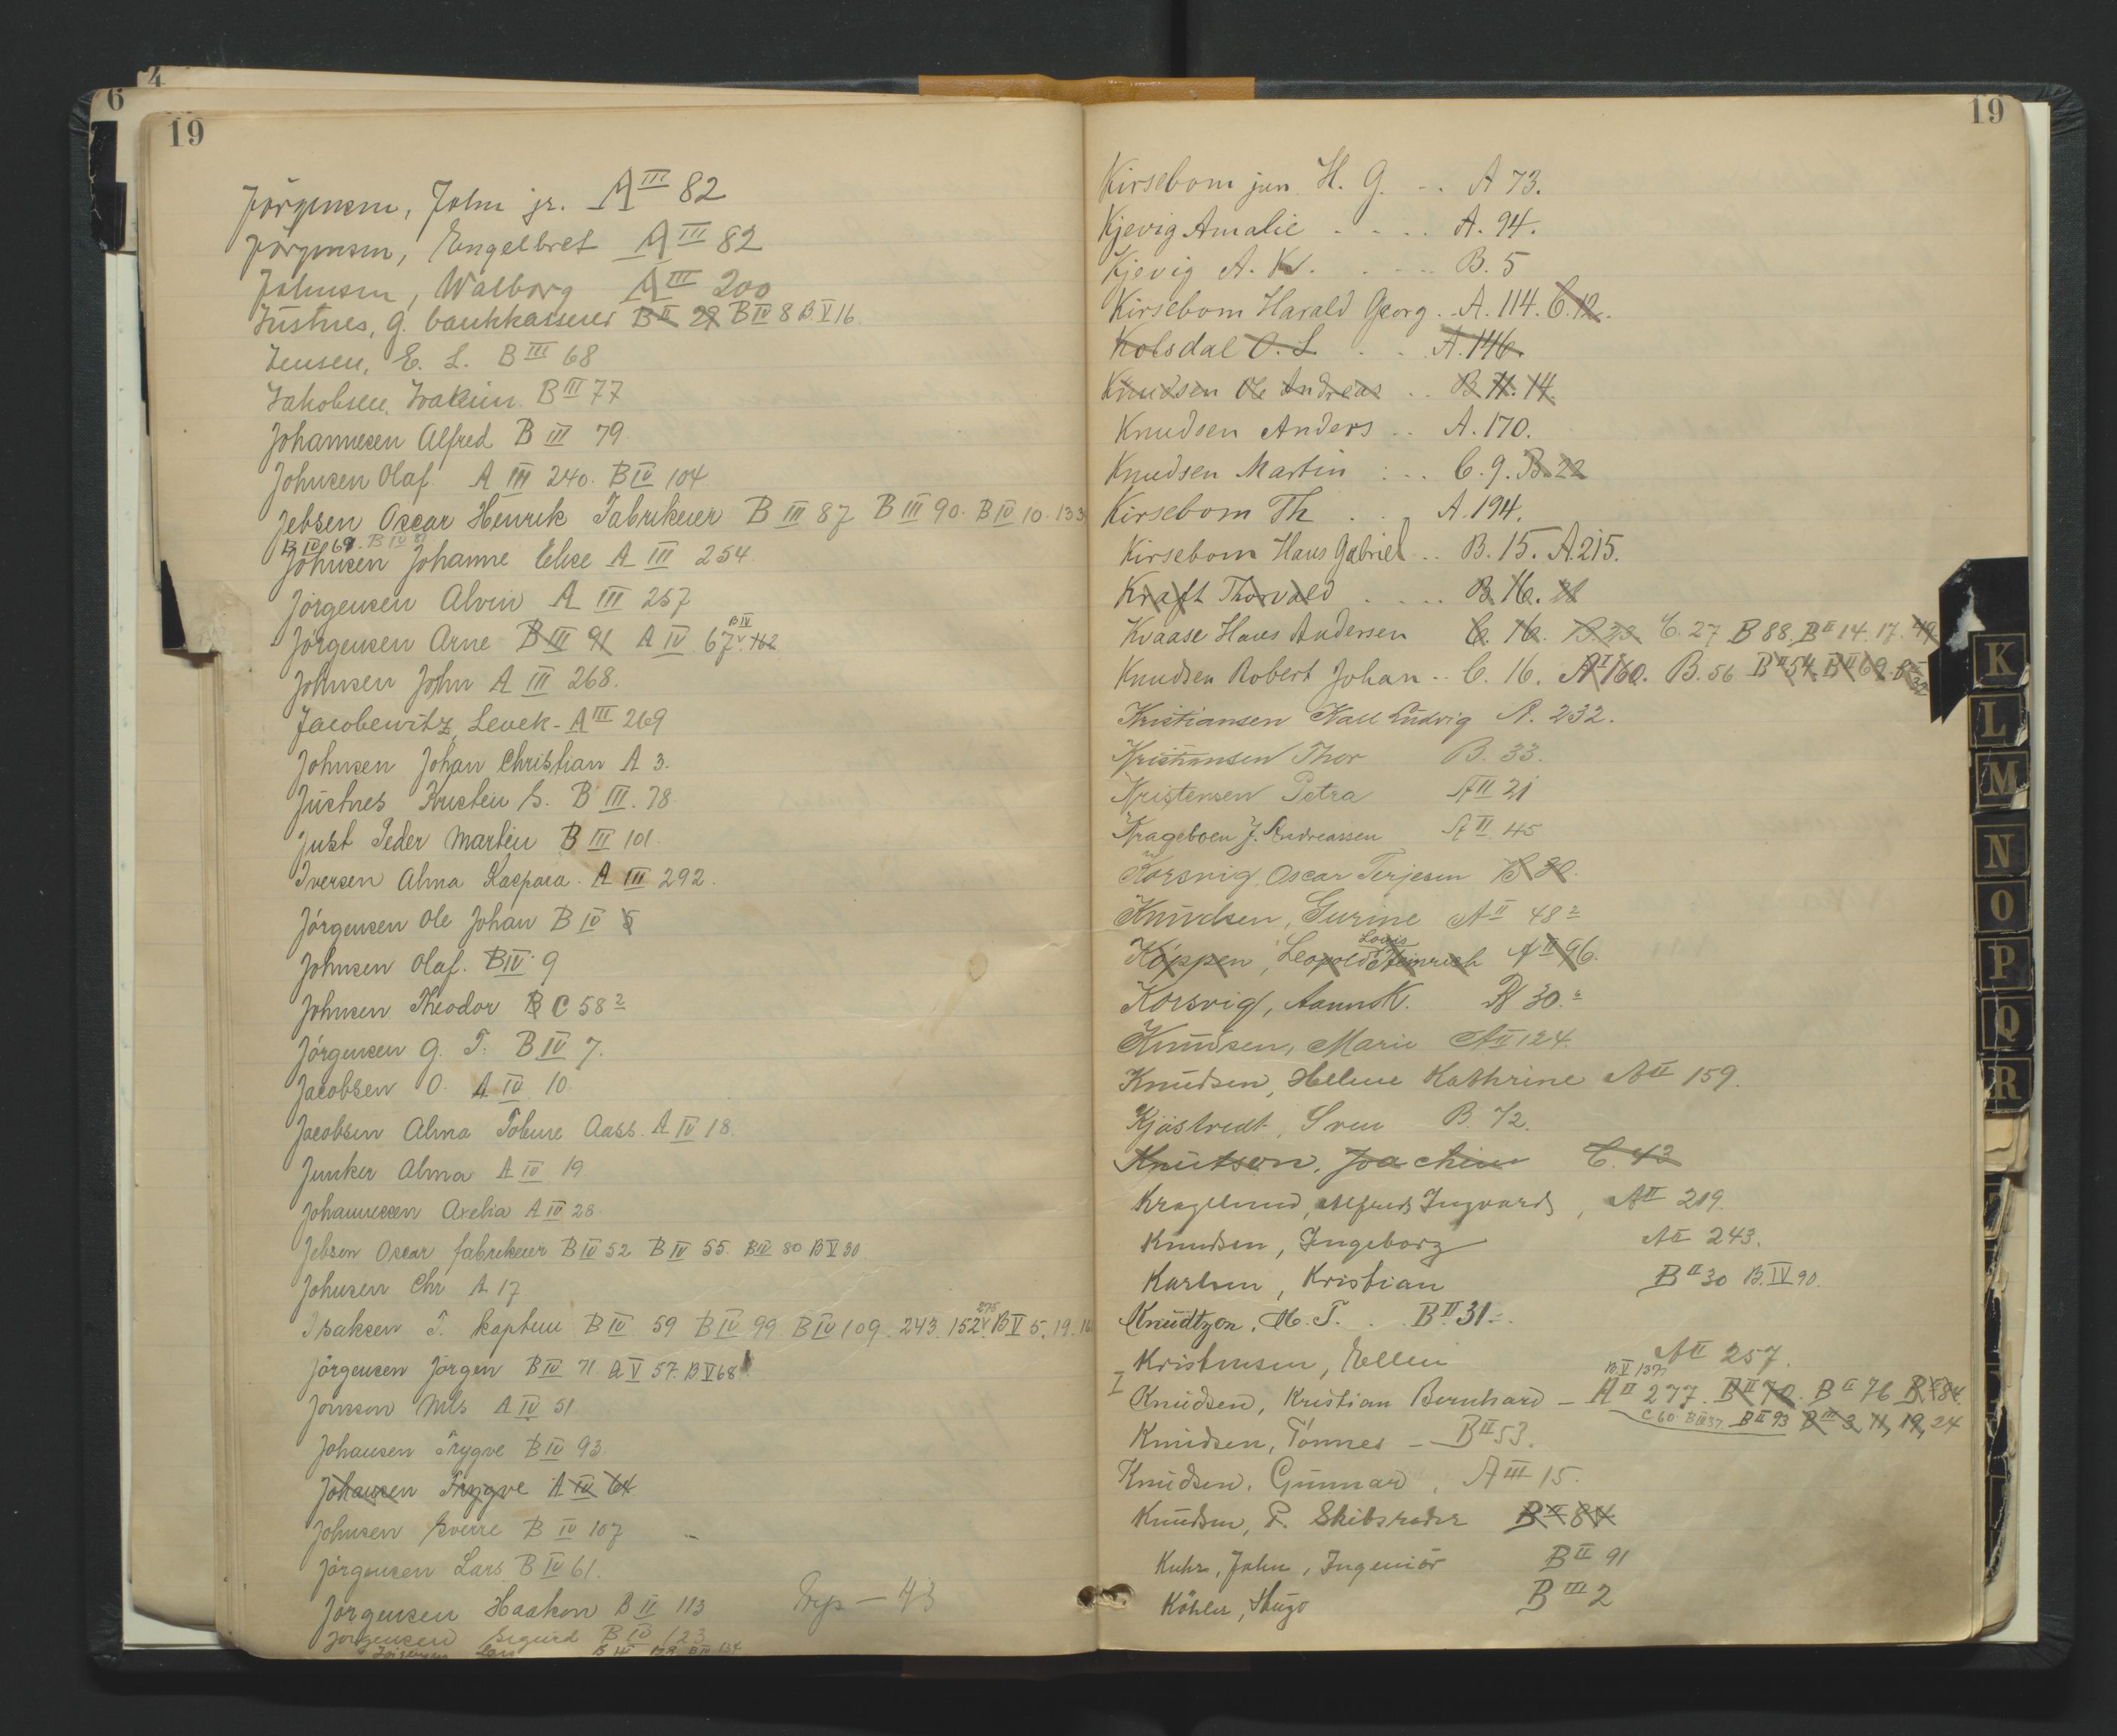 4
6
19
Jörgensen, John jr. A III 82
Jörgensen, Engelbret A III 82
Johnsen, Walborg A III 200
Jüstnes, G. bankkasserer B II 29 B IV 8 B V 16.
Jensen, E. L. B III 68
Jakobsen, Joakim. B III 77
Johannesen Alfred B III 79
Johnsen Olaf A III 240. B IV 104
Jebsen Oscar Henrik Fabrikeier B III 87 B III 90. B IV 10. 133
B IV 69. B IV
Johnsen Johanne Elise A III 254
Jörgensen Alvin A III 257
Jörgensen Arne B III 91 A IV 67 B IV 162
Johnsen John A III 268.
Jacobewitz, Levek - A III 269
Johnsen Johan Christian A 3.
Jüstnes Kristen S. B III. 78
Just Peder Martin B III 101.
Iversen Alma Kaspara. A III 292.
Jörgensen Ole Johan B IV 5
Johnsen Olaf. B IV 9
Johnsen Theodor B C 58 2
Jörgensen G. T. B IV 7.
Jacobsen O. A IV 10.
Jacobsen Alma Tobine Aass. A IV 18.
Junker Alma A IV 19
Johannessen Axelia A IV 28.
Jebsen Oscar fabrikeier B IV 52 B IV 55. B IV 80 B V 30
Johnsen Chr A 17
Isaksen T. kaptein B IV 59 B IV 99. B IV 109. 243. 152. 275 B V 5. 19.
Jörgensen Jörgen B IV 71. A V 57. B V 68.
Jonsson Nils A IV 51
Johansen Trygve B IV 93.
Johansen Trygve A IV 64
Johnsen Sverre B IV 107
Jörgensen Lars B IV 61.
Jorgensen Haakon B II 113
43
Jorgensen Sigurd B IV 123
19
Kirsebom jun. H. G. - . A 73.
Kjevig Amalie . . . . A. 94.
Kjevig A. K. . . . . B. 5
Kirsebom Harald Georg. . A. 114. C. 12.
Kolsdal O. L . . . A. 146.
Knudsen Ole Andreas . . B. 11. 14.
Knudsen Anders . . A. 170.
Knudsen Martin . . . C. 9. B. 22
Kirsebom Th . . . A. 194.
Kirsebom Hans Gabriel . . B. 15. A. 215.
Kraft Thorvald . . . . B. 16. 21
Kvaase Hans Andersen C. 16. B. 23. C. 27 B 88. B II 14. 17. 49
Knudsen Robert Johan . . C. 16. A I 160. B. 56 B II 54. B II 69.
Kristiansen Karl Ludvig A. 232.
Kristiansen Thor B. 33.
Kristensen Petra A II 21
Krageboen J. Andreassen A II 45
Korsvig Oscar Terjesen B 30.
Knudsen, Gurine A II 48 2
Louis
Köppen, Leopold Heinrich A II 96.
Korsvig, Aanon K. B 30.
Knudsen, Marie A II 124.
Knudsen, Helene Kathrine A II 159.
Kjöstvedt, Sven B. 72.
Knutson, Joachim C. 43
Kragelund, Alfred Ingvard, A II 219.
Knudsen, Ingeborg A II 243.
Karlsen, Kristian B II 30 B. IV 90.
Knudtzon, M. T. . . B II 31.
Kristensen, Ellen A II 257.
B. V 137
I Knudsen, Kristian Bernhard - A II 277. B II 70. B II 76 B II 84
C 60. B III 37. B II 93 B III 3, 11, 19, 24
Knudsen, Tönnes - B II 53.
Knudsen, Gunnar, A III 15.
Knudsen, P. Skibsreder B II 84
Kuhr, John, Ingeniör B II 91
Köhler, Hugo B III 2
K
L
M
N
O
P
Q
R